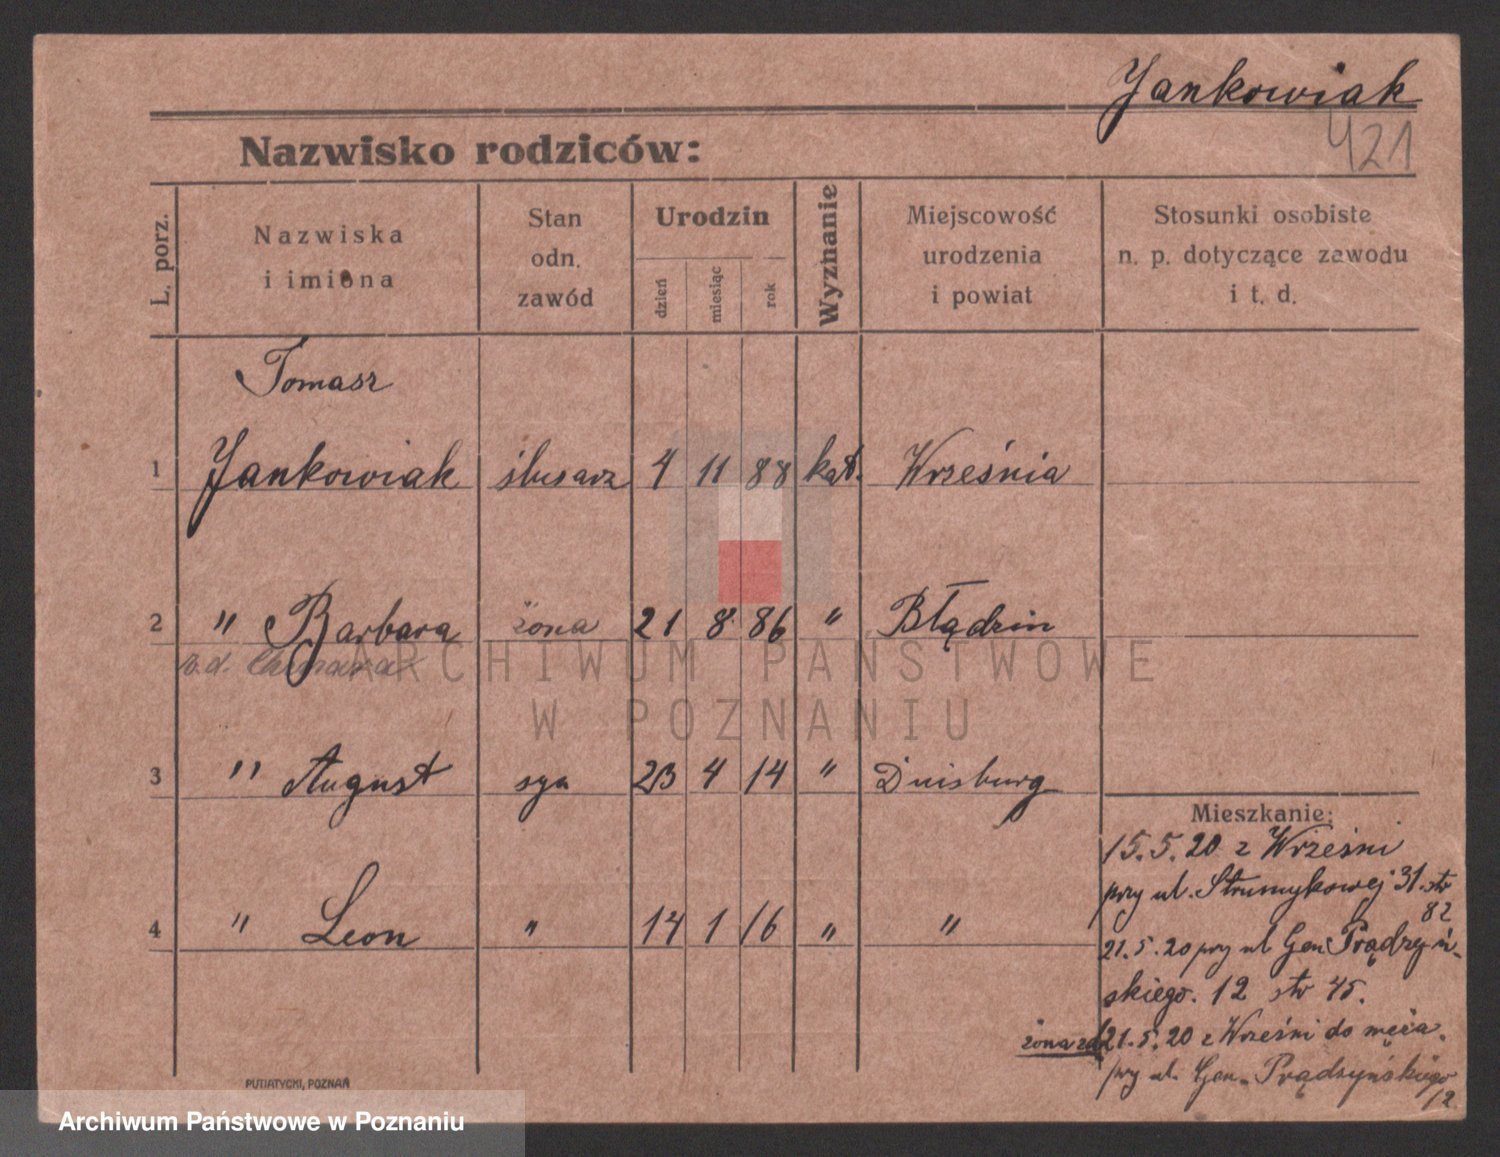 Jankowiak
421
Nazwisko rodziców:
L. porz.
Nazwiska
i imiona
Stan
odn.
zawód
Urodzin
dzień
miesiąc
rok
Wyznanie
Miejscowość
urodzenia
i powiat
Stosunki osobiste
n. p. dotyczące zawodu
i t. d.
Tomasz
1 Jankowiak ślusarz 4 11 88 kat. Września
2 " Barbara żona 21 8 86 " Błądzin
z.d.
3 " August syn 23 4 14 " Duisburg
4 " Leon " 14 1 16 " "
Mieszkanie:
15.5.20 z Wrześni
przy ul. Strumykowej 31. str
82
21.5.20 przy ul Gen Prądzyń-
skiego. 12 str 45.
żona zd 21.5.20 z Wrześni do męża.
przy ul. Gen. Prądzyńskiego
12
PUTIATYCKI, POZNAŃ
ARCHIWUM PAŃSTWOWE
W POZNANIU
Archiwum Państwowe w Poznaniu